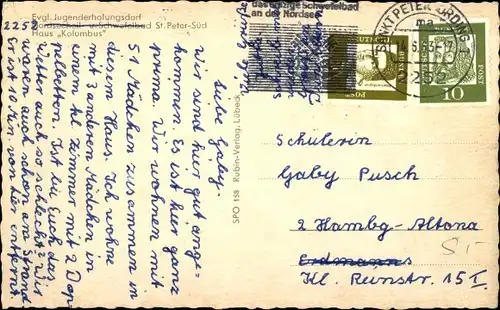 Evgl. Jugenderholungsdorf
Nordseeheil- u. Schwefelbad St. Peter-Süd
Haus „Kolumbus"
2252
das einzige Schwefelbad
an der Nordsee
SANKT PETER-ORDING
DEUTSCHE
POST
10
POST
Liebe Gaby.
Wir sind hier gut ange-
kommen. Es ist hier ganz
prima. Wir wohnen mit
51 Mädchen zusammen in
diesem Haus. Ich wohne
mit 3 anderen Mädchen in
einem kl. Zimmer mit 2 Dop-
pelbetten. Ist bei Euch das
Wetter auch so schlecht? Wir
waren auch schon am Strand
Er ist 10 Min von hier entfernt
SPO 158 Rubin-Verlag, Lübeck
Schülerin
Gaby Pusch
2 Hambg-Altona
Erdmanns
Kl. Rainstr. 15 I